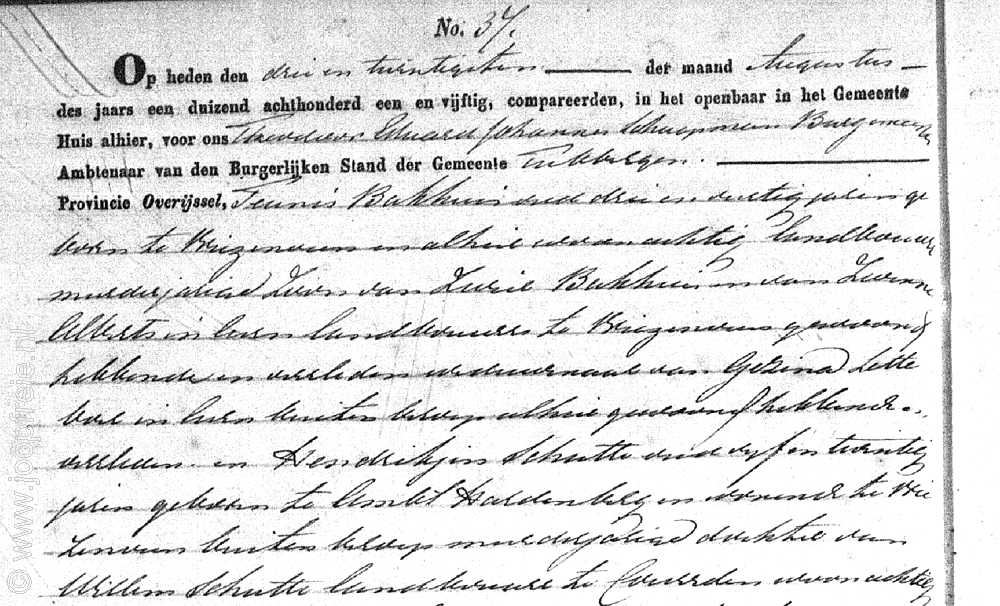 No. 37.
Op heden den drie en twintigsten der maand Augustus
des jaars een duizend achthonderd een en vijftig, compareerden, in het openbaar in het Gemeente
Huis alhier, voor ons Theodoor Eduard Johannes Schaepman Burgemeester
Ambtenaar van den Burgerlijken Stand der Gemeente Tubbergen.
Provincie Overijssel, Teunis Bakhuis oud drie en veertig jaren ge
boren te Vriezenveen en alhier woonachtig landbouwer
meerderjarige Zoon van Bakhuis en van
Alberts in leven landbouwers te Vriezenveen gewoond
hebbende en overleden weduwnaar van Gezina Lette
boer in leven buiten beroep alhier gewoond hebbende
overleden en Hendrikjen Schutte oud vyf en twintig
jaren geboren te Ambt Hardenberg en wonende te Vrie
zenveen buiten beroep meerderjarige dochter van
Willem Schutte landbouwer te Coevorden woonachtig
© www.joopfreije.nl